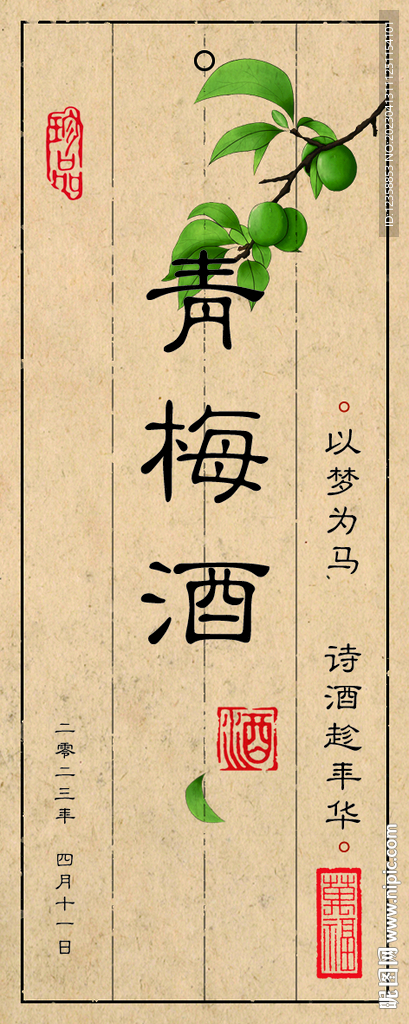 珍品
青梅酒
以梦为马
诗酒趁年华
酒
萬福
二零二三年 四月十一日
昵图网 www.nipic.com